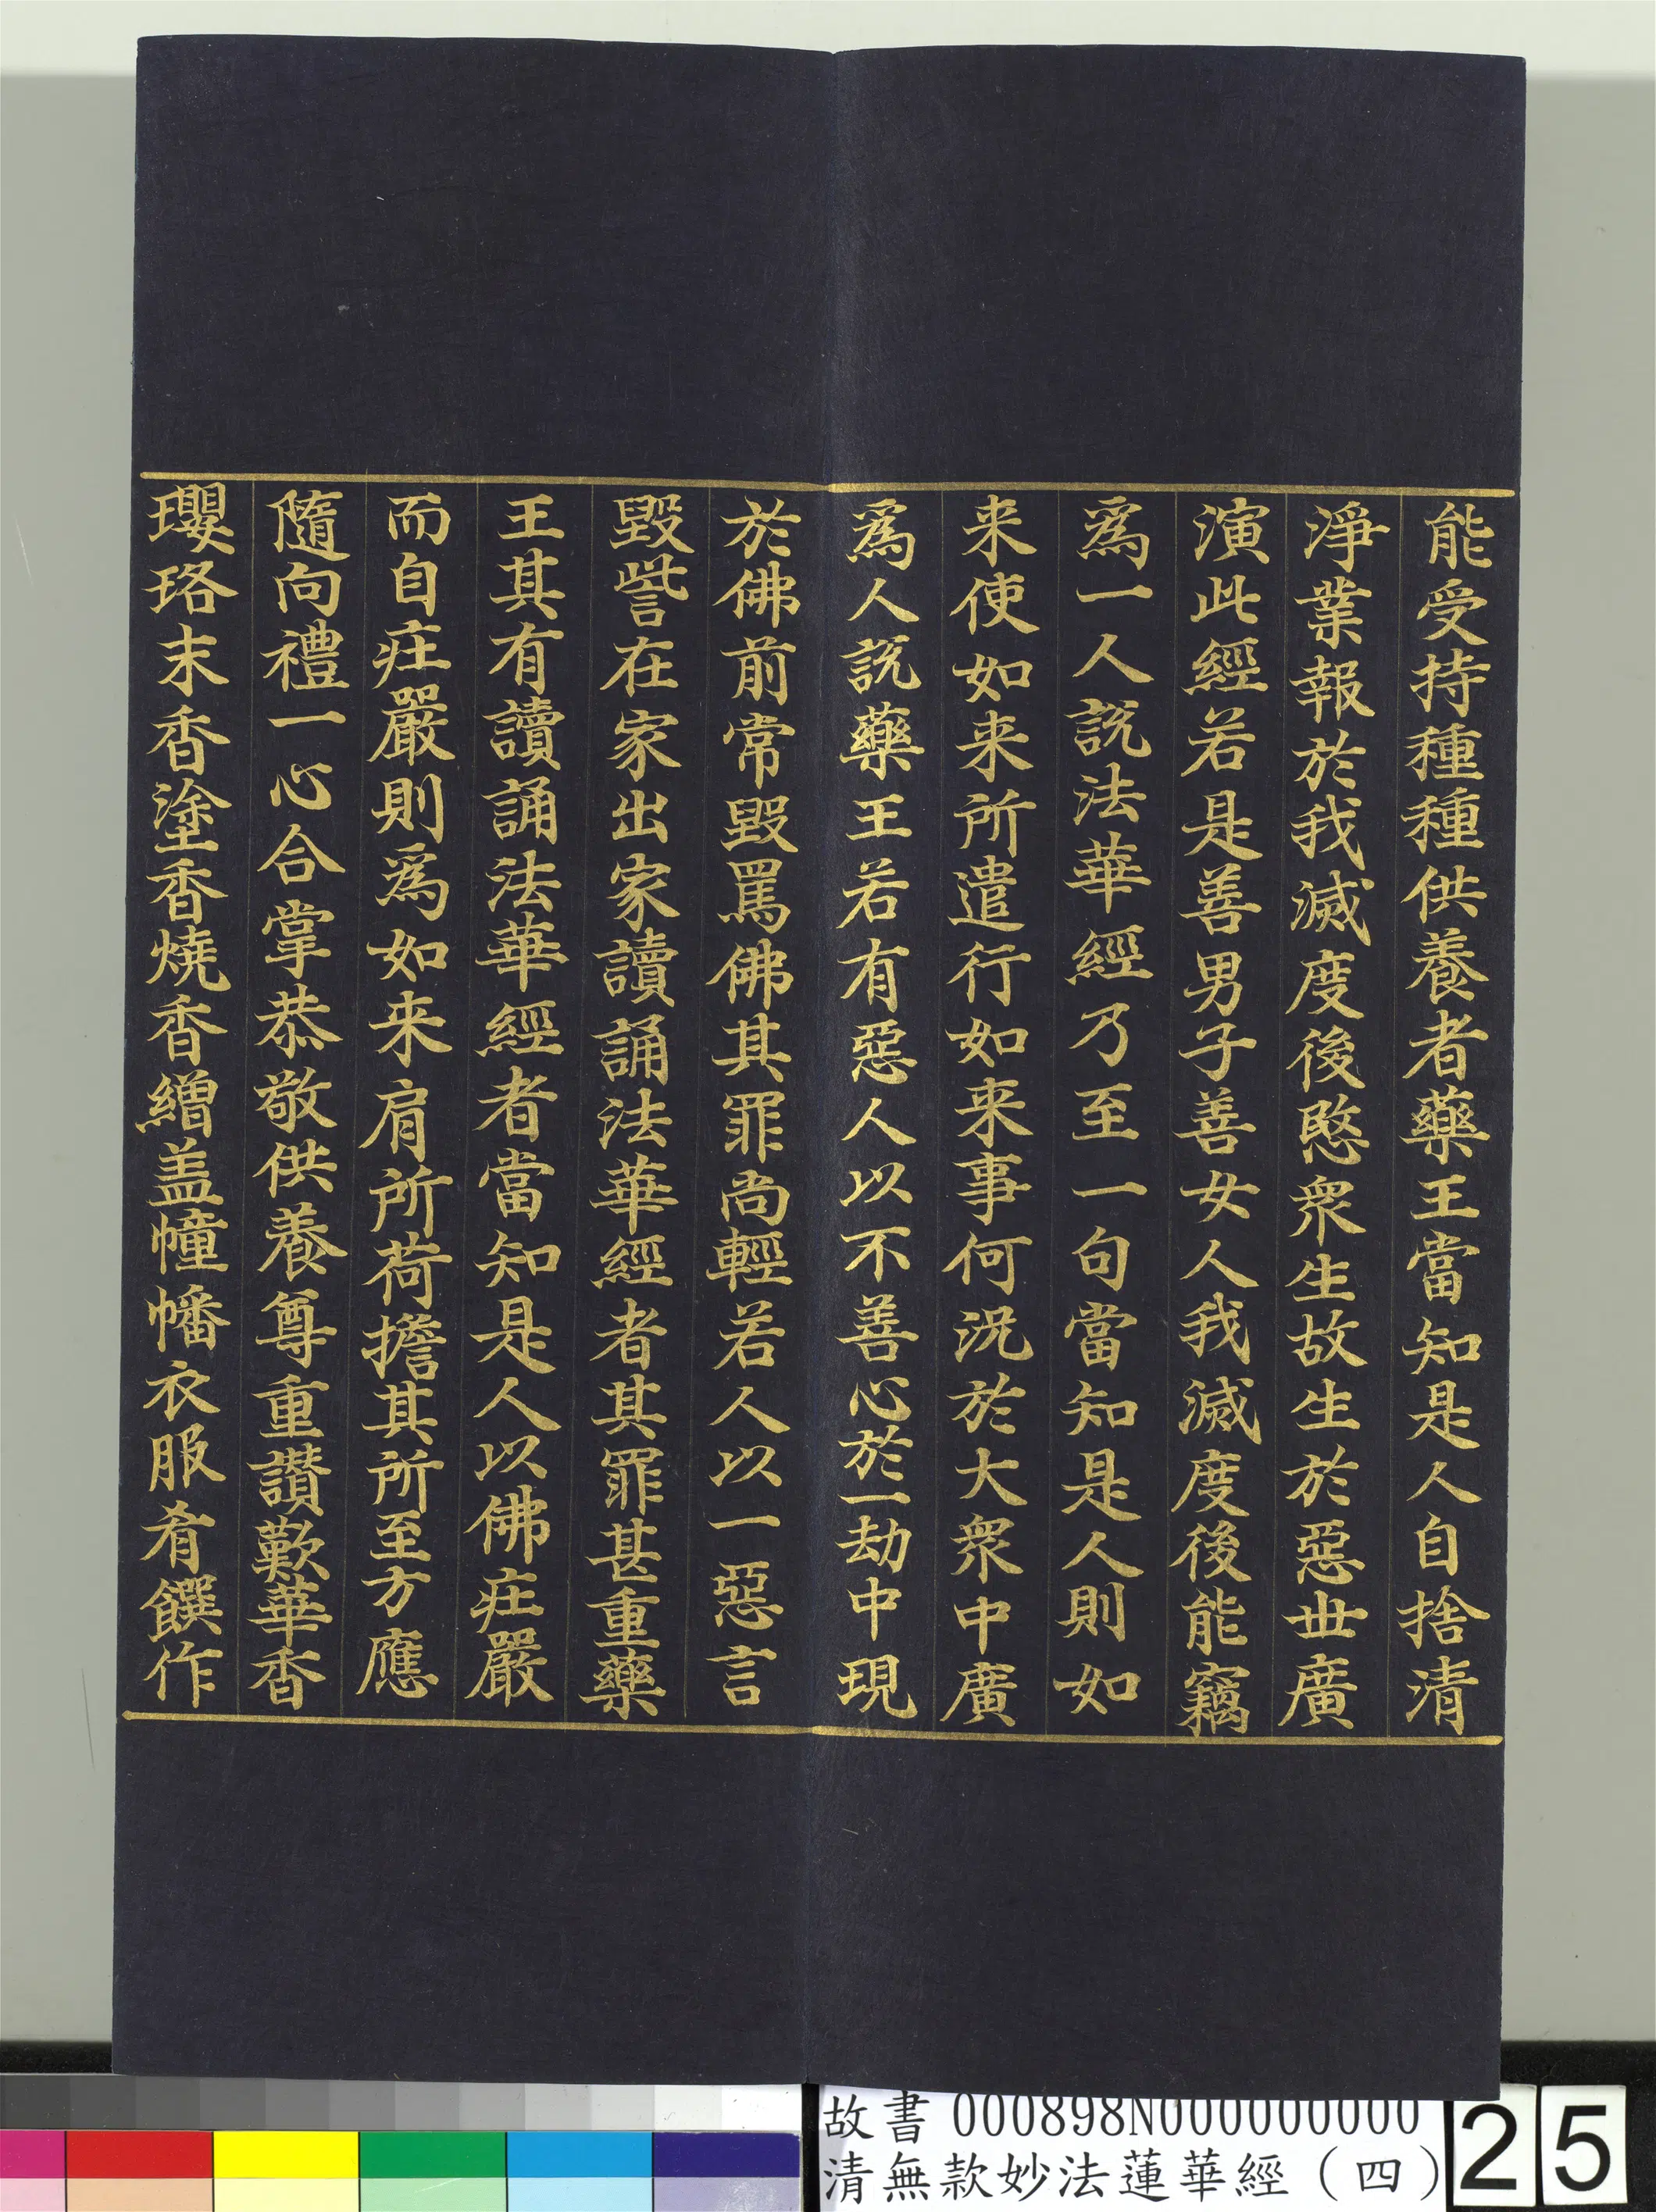 能受持種種供養者藥王當知是人自捨清
淨業報於我滅度後愍衆生故生於惡世廣
演此經若是善男子善女人我滅度後能竊
爲一人說法華經乃至一句當知是人則如
来使如来所遣行如来事何況於大衆中廣
爲人說藥王若有惡人以不善心於一劫中現
於佛前常毀罵佛其罪尚輕若人以一惡言
毀訾在家出家讀誦法華經者其罪甚重藥
王其有讀誦法華經者當知是人以佛庄嚴
而自庄嚴則爲如来肩所荷擔其所至方應
隨向禮一心合掌恭敬供養尊重讚歎華香
瓔珞末香塗香燒香繒盖幢幡衣服肴饌作
故書 000898N000000000
清無款妙法蓮華經（四）
25